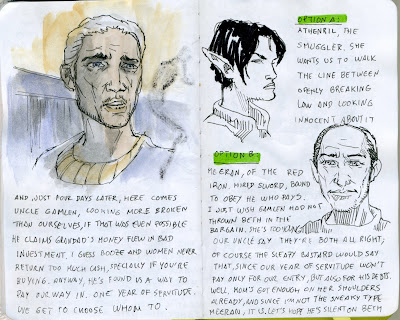 AND JUST FOUR DAYS LATER, HERE COMES
UNCLE GAMLEN, LOOKING MORE BROKEN
THAN OURSELVES, IF THAT WAS EVEN POSSIBLE
HE CLAIMS GRANDAD'S MONEY FLEW IN BAD
INVESTMENT. I GUESS BOOZE AND WOMEN NEVER
RETURN TOO MUCH CASH, SPECIALLY IF YOU'RE
BUYING. ANYWAY, HE'S FOUND US A WAY TO
PAY OUR WAY IN. ONE YEAR OF SERVITUDE.
WE GET TO CHOOSE WHOM TO.
OPTION A:
ATHENRIL, THE
SMUGGLER. SHE
WANTS US TO WALK
THE LINE BETWEEN
OPENLY BREAKING
LAW AND LOOKING
INNOCENT ABOUT IT
OPTION B:
MEERAN, OF THE RED
IRON. HIRED SWORD, BOUND
TO OBEY HE WHO PAYS.
I JUST WISH GAMLEN HAD NOT
THROWN BETH IN THE
BARGAIN. SHE'S TOO YOUNG
OUR UNCLE SAY THEY'RE BOTH ALL RIGHT;
OF COURSE THE SLEAZY BASTARD WOULD SAY
THAT, SINCE OUR YEAR OF SERVITUDE WON'T
PAY ONLY FOR OUR ENTRY, BUT ALSO FOR HIS DEBTS.
WELL, MOM'S GOT ENOUGH ON HER SHOULDERS
ALREADY, AND SINCE I'M NOT THE SNEAKY TYPE
MEERAN, IT IS. LET'S HOPE HE'S SILENT ON BETH